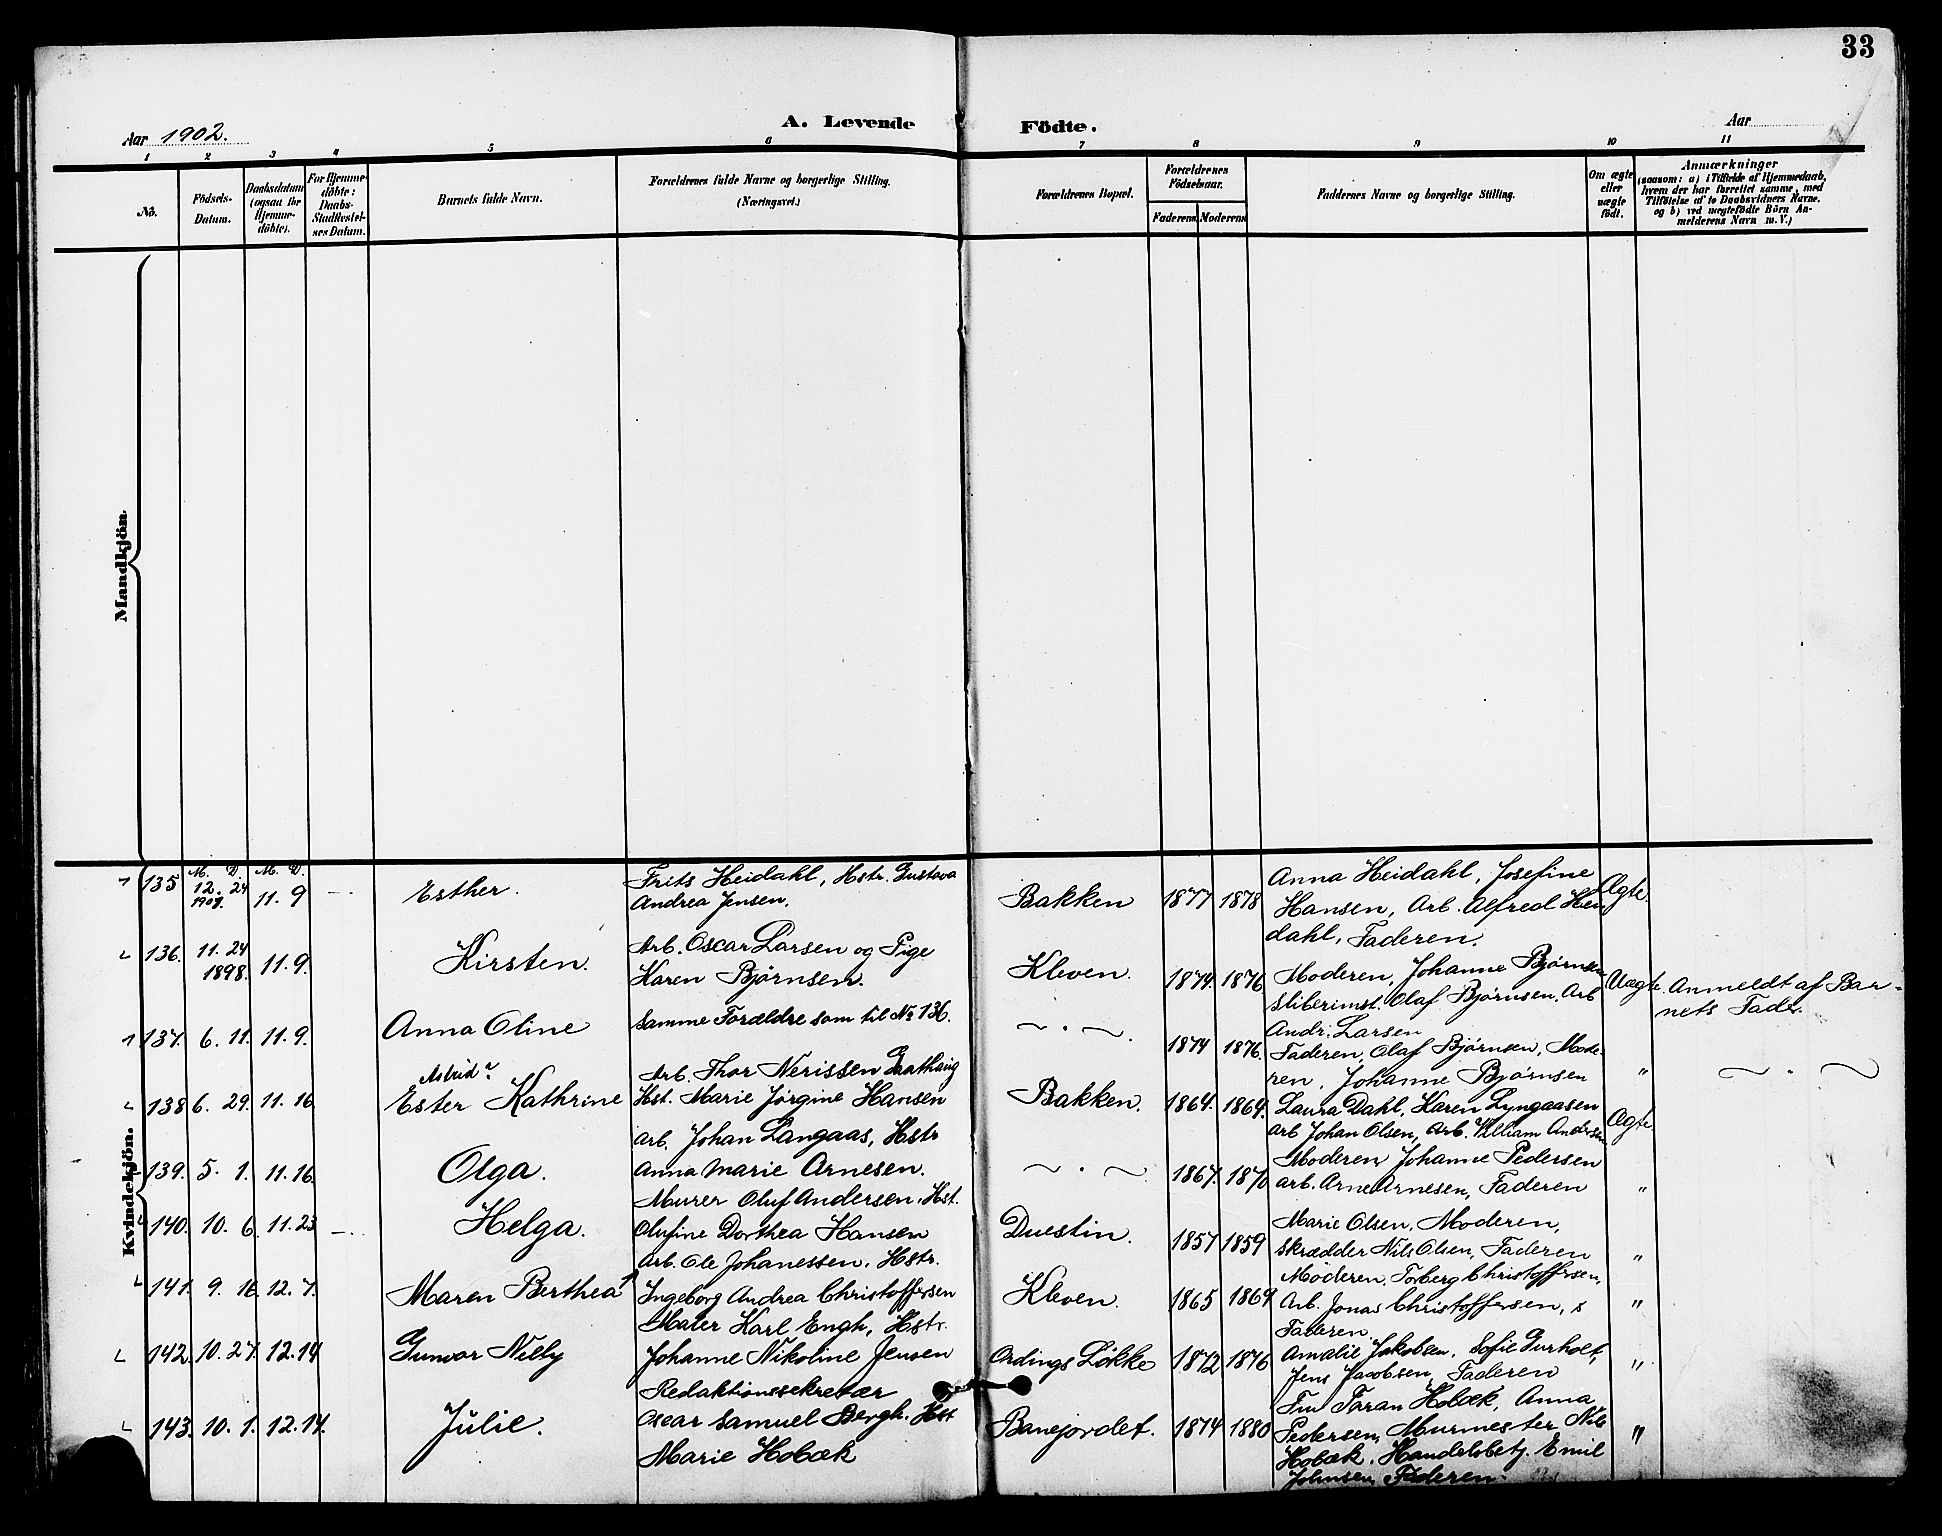 33
Aar 1902.
A. Levende Födte.
Aar
1 2 3 4 5 6 7 8 9 10 11
No.
Födsels-Datum.
Daabsdatum (ogsaa for Hjemme-döbte).
For Hjemme-döbte: Daabs-Stadfæstel-ses Datum.
Barnets fulde Navn.
Forældrenes fulde Navne og borgerlige Stilling. (Næringsvei.)
Forældrenes Bopæl.
Forældrenes Födselsaar.
Faderens Moderens
Faddernes Navne og borgerlige Stilling.
Om ægte eller uægte födt.
Anmærkninger
(saasom: a) i Tilfælde af Hjemmedaab,
hvem der har forrettet samme, med
Tilföielse af to Daabsvidners Navne,
og b) ved uægtefödte Börn An-
melderens Navn m. V.)
Mandkjön.
Kvindekjön.
M. D. M. D.
135 12. 24 1901. 11. 9 Esther.
Frits Heidahl, Hstr. Gustava
Andrea Jensen.
Bakken 1877 1878
Anna Heidahl, Josefine
Hansen, Arb. Alfred Hei
dahl, Faderen.
Ægte.
136. 11. 24 1898. 11. 9. Kirsten.
Arb. Oscar Larsen og Pige
Karen Bjørnsen.
Kleven. 1874. 1876.
Moderen, Johanne Bjørnsen
Sliberimst. Olaf Bjørnsen, Arb
Andr. Larsen
Uægte.
Anmeldt af Bar-
nets Fader.
137. 6. 11. 11. 9. Anna Oline
Samme Forældre som til No 136.
~ . ~ . 1874 1876.
Faderen, Olaf Bjørnsen, Mode-
ren, Johanne Bjørnsen
" ~ . ~
138 6. 29. 11. 16.
Astrid
Ester Kathrine
Arb. Thor Nerissen
Hst. Marie Jørgine Hansen
Bakken. 1864. 1864.
Laura Dahl, Karen Lyngaasen
Arb Johan Olsen, Arb. William Andersen
Ægte.
139. 5. 1. 11. 16. Olga.
Arb. Johan Langaas, Hstr
Anna Marie Arnesen.
~ . ~ 1867. 1870
Moderen, Johanne Pedersen
Arb. Arne Arnesen, Faderen
"
140. 10. 6. 11. 23 Helga.
Murer Oluf Andersen. Hst.
Olufine Dorthea Hansen
Duestin. 1857 1859
Marie Olsen, Moderen,
Skrædder Nils Olsen, Faderen
"
141. 9. 16 12. 7. Maren Berthea
Arb. Ole Johanessen, Hstr.
Ingeborg Andrea Christoffersen
Kleven. 1865 1869
Moderen, Torberg Christoffersen,
Arb. Jonas Christoffersen,
Faderen.
"
142. 10. 27. 12. 14 Gunvor Nilly
Maler Karl Engh, Hstr.
Johanne Nikoline Jensen
Ordings Løkke 1872 1876
Amalie Jakobsen, Sofie Gurholt,
Jens Jacobsen, Faderen
"
143. 10. 1. 12. 14. Julie.
Redaktionssekretær
Oscar Samuel Bergh. Hst
Marie Hobæk
Banejordet. 1874 1880
Hobæk, Anna
Pedersen, Murmester Nils
Hobæk, Handelsbetj. Emil
Johnsen, Faderen.
"